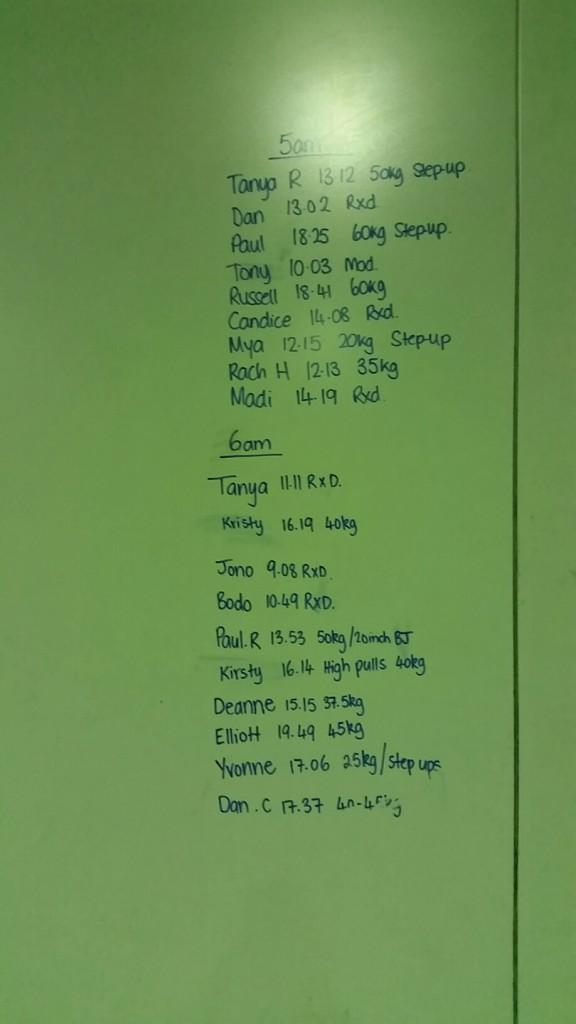 5am
Tanya R 13.12 50kg Step-up
Dan 13.02 Rxd
Paul 18.25 60kg Step-up.
Tony 10.03 Mod.
Russell 18.41 60kg
Candice 14.08 Rxd.
Mya 12.15 20kg Step-up
Rach H 12.13 35kg
Madi 14.19 Rxd.
6am
Tanya 11.11 RxD.
Kristy 16.19 40kg
Jono 9.08 RxD.
Bodo 10.49 RxD.
Paul.R 13.53 50kg/20inch BJ
Kirsty 16.14 High pulls 40kg
Deanne 15.15 37.5kg
Elliott 19.49 45kg
Yvonne 17.06 25kg/step ups
Dan.C 17.37